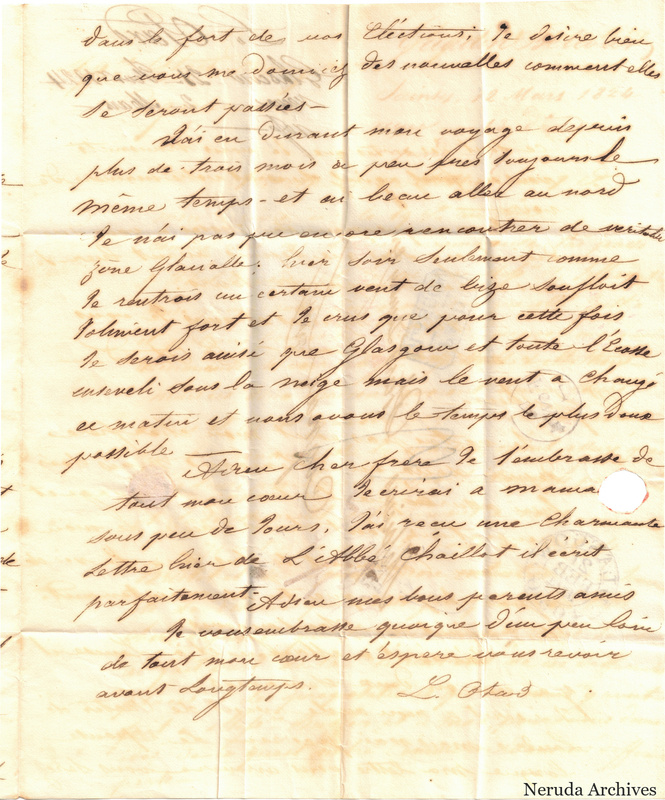 dans le fort de vos Elections, Je désire bien
que vous me donniez des nouvelles comment elles
se seront passées —
J'ai eu durant mon voyage depuis
plus de trois mois à peu près toujours le
même temps — et ai beau aller au nord
Je n'ai pas pu encore rencontrer de veritable
zone Glacialle. hier soir seulement comme
Je rentrois un certain vent de bize souffloit
Joliment fort et Je crus que pour cette fois
Je serois avisé que Glasgow et toute l'Ecosse
enseveli sous la neige mais le vent a changé
ce matin et nous avons le temps le plus doux
possible —
Adieu Cher frère Je t'embrasse de
tout mon cœur Jecrirai a mama
sous peu de Jours. J'ai reçu une Charmante
Lettre hier de L'Abbé Chaillot il ecrit
parfaitement. Adieu mes bons parents amis
Je vous embrasse quoique d'un peu loin
de tout mon cœur et espere vous revoir
avant Longtemps. L. Otard
Neruda Archives